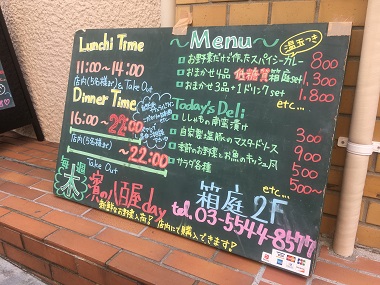 Lunch Time
11:00~14:00
店内(5名様まで) & Take Out
Dinner Time
16:00~22:00
店内(5名様まで)
Take Out
~22:00
毎週
木
寳の八百屋day
新鮮なお野菜入荷! 店内にて購入できます!
~Menu~
温玉つき
お野菜だけで作ったスパイシーカレー 800
おまかせ4品 低糖質箱庭set 1,300
おまかせ3品+1ドリンクset 1,800
etc...
Today's Deli
ししゃもの南蛮漬け 300
自家製塩豚のマスタードソース 900
季節のお野菜とお魚のキッシュ風 500
サラダ各種 500~
etc...
箱庭 2F
tel.03-5544-8577